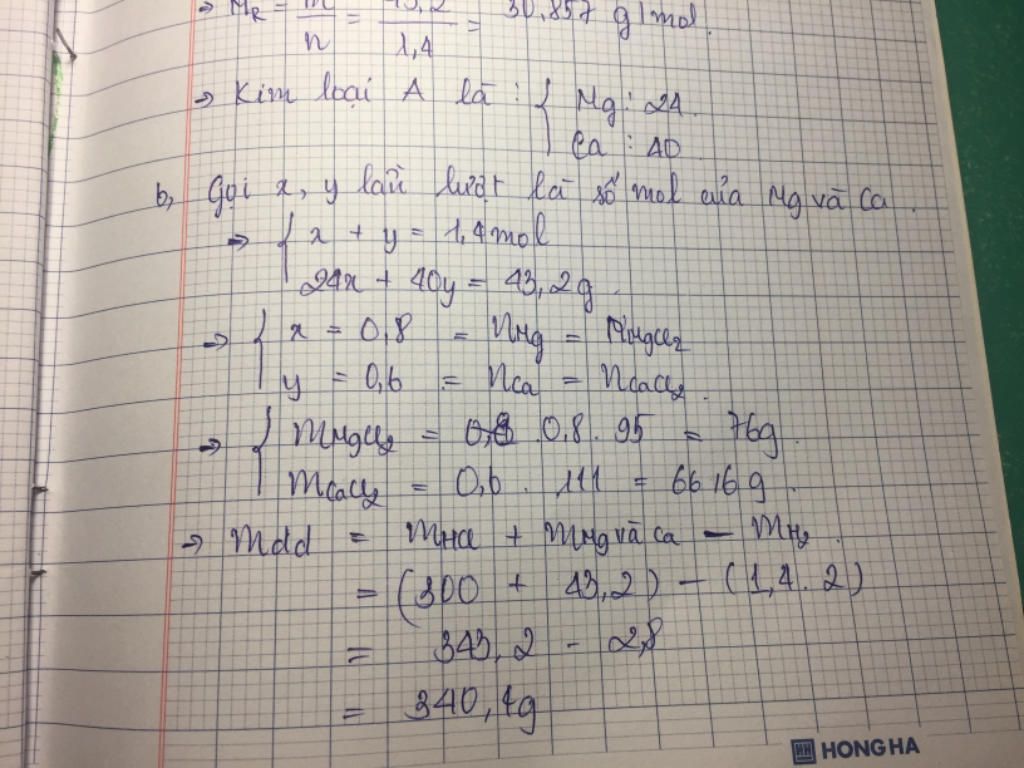 → M_R = m/n = 43,2/1,4 = 30,857 g/mol.
→ Kim loại A là : { Mg : 24
Ca : 40
b, Gọi x, y lần lượt là số mol của Mg và Ca.
→ { x + y = 1,4 mol
24x + 40y = 43,2g.
→ { x = 0,8 = nMg = nMgCl₂
y = 0,6 = nCa = nCaCl₂.
→ { mMgCl₂ = 0,8 . 95 = 76g.
mCaCl₂ = 0,6 . 111 = 66,6 g.
→ mdd = mHCl + mMg và Ca − mH₂.
= (300 + 43,2) − (1,4. 2)
= 343,2 − 2,8
= 340,4g
HONG HA